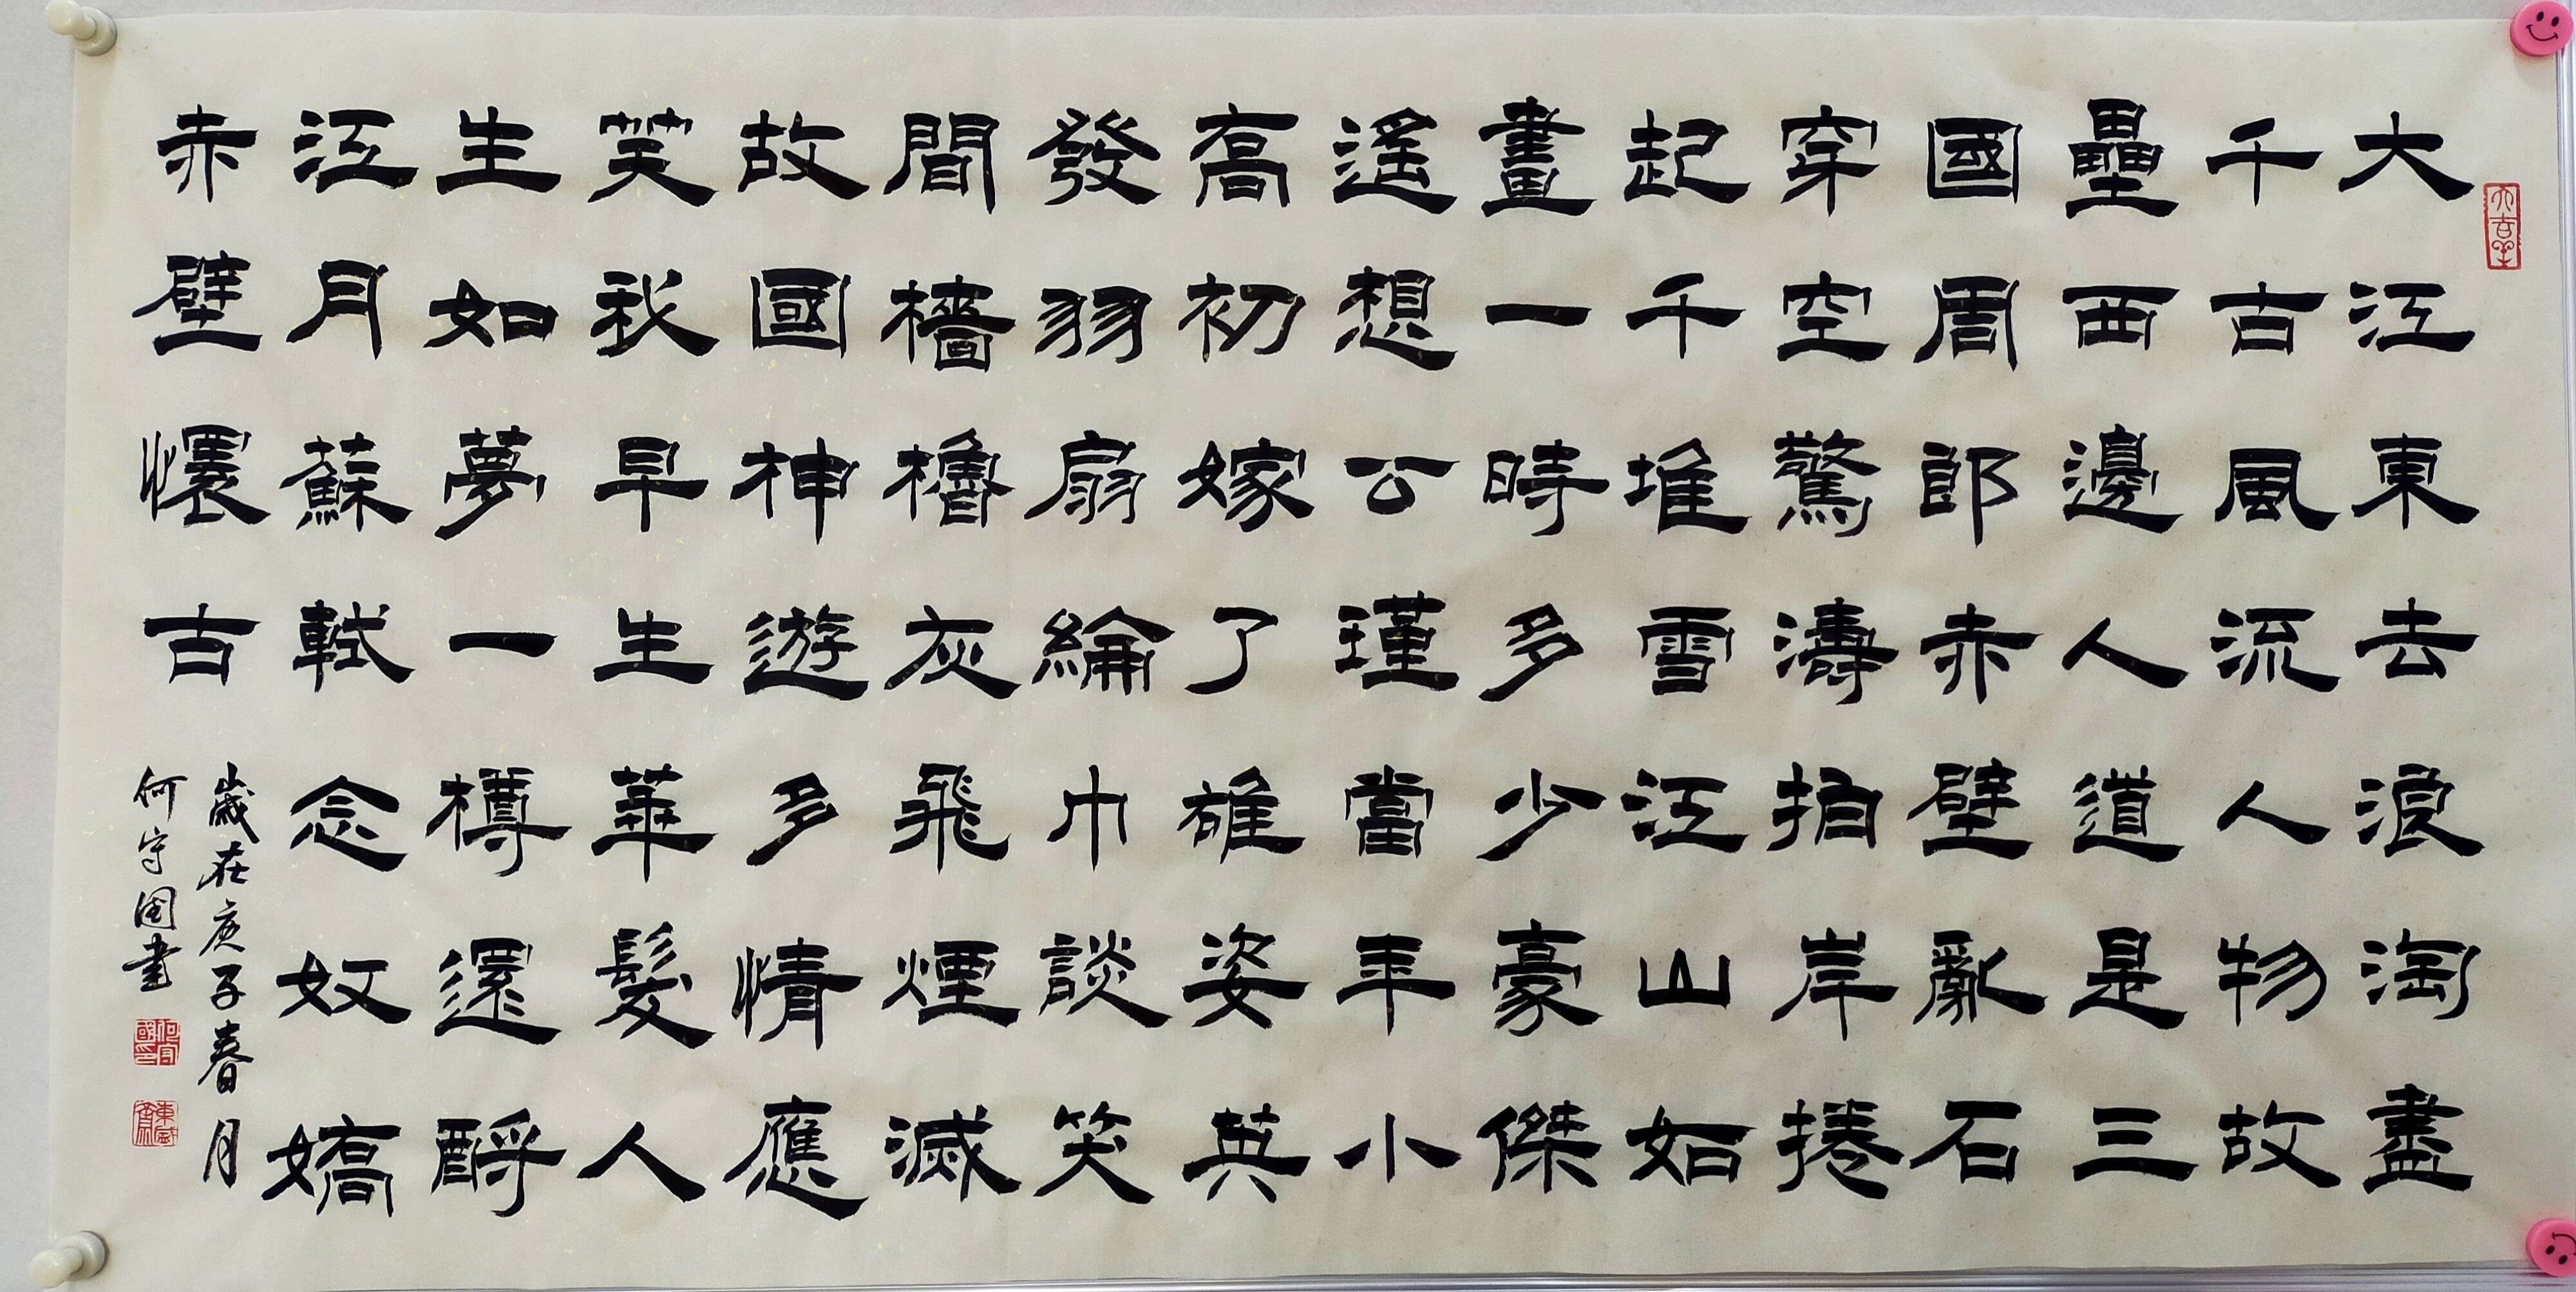 大江東去浪淘盡
千古風流人物故
壘西邊人道是三
國周郎赤壁亂石
穿空驚濤拍岸捲
起千堆雪江山如
畫一時多少豪傑
遙想公瑾當年小
喬初嫁了雄姿英
發羽扇綸巾談笑
間檣櫓灰飛煙滅
故國神遊多情應
笑我早生華髮人
生如夢一樽還酹
江月蘇軾念奴嬌
赤壁懷古
歲在庚子春月
何守國書
何守國印